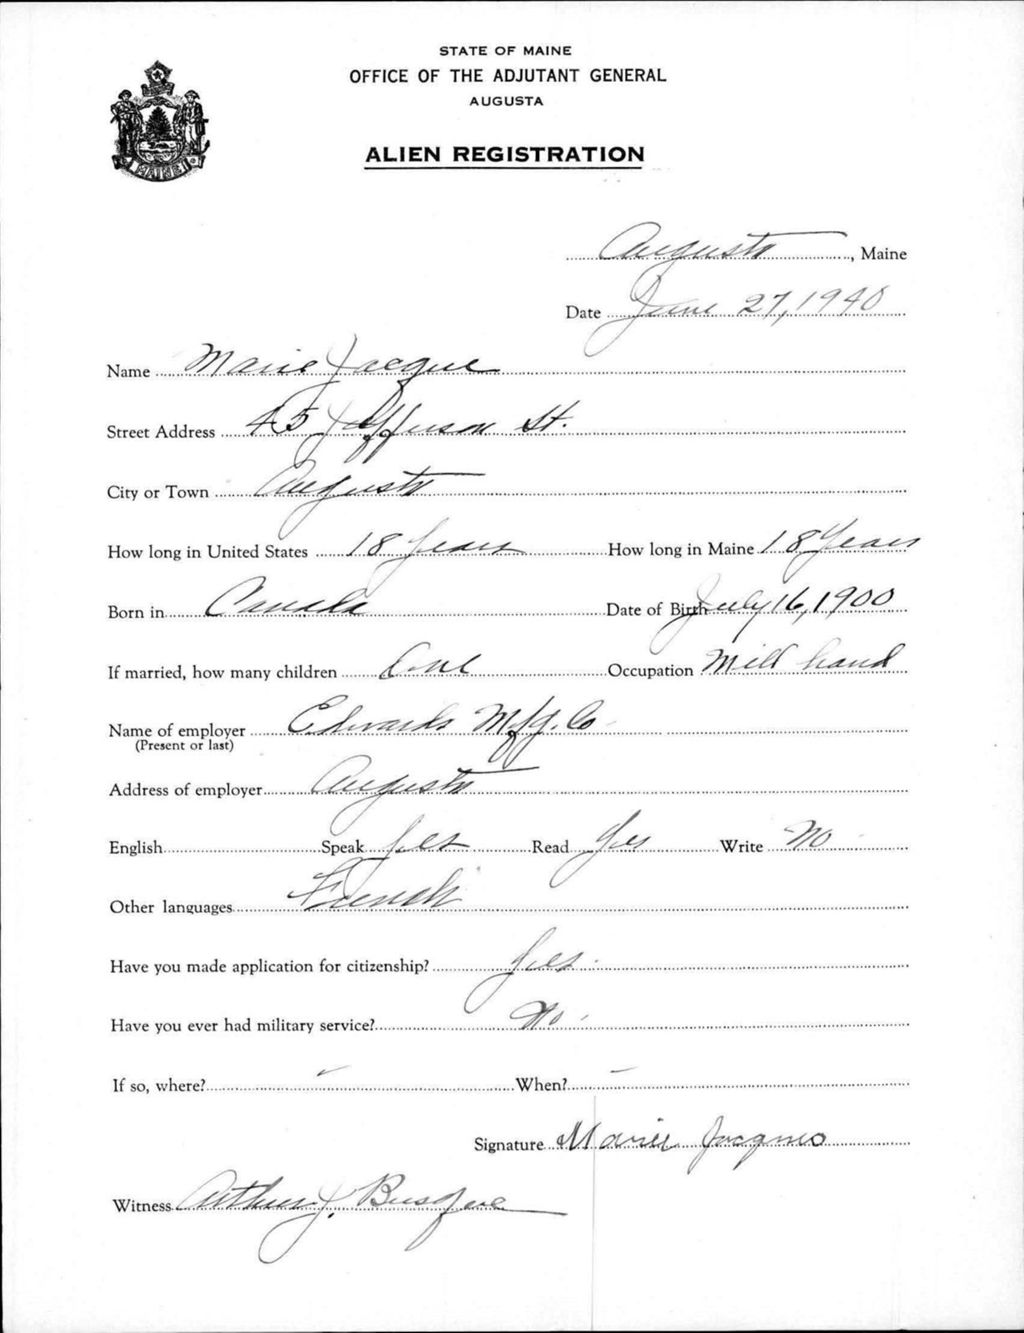 STATE OF MAINE
OFFICE OF THE ADJUTANT GENERAL
AUGUSTA
ALIEN REGISTRATION
MAINE
Augusta, Maine
Date June 27, 1940
Name Marie Jacque
Street Address 45 Jefferson St.
City or Town Augusta
How long in United States 18 years How long in Maine 18 Years
Born in Canada Date of Birth July 16, 1900
If married, how many children One Occupation Mill hand
Name of employer Edwards Mfg. Co
(Present or last)
Address of employer Augusta
English Speak yes Read Yes Write No
Other languages French
Have you made application for citizenship? yes
Have you ever had military service? No.
If so, where? - When? -
Signature Marie Jacques
Witness Arthur J. Busque